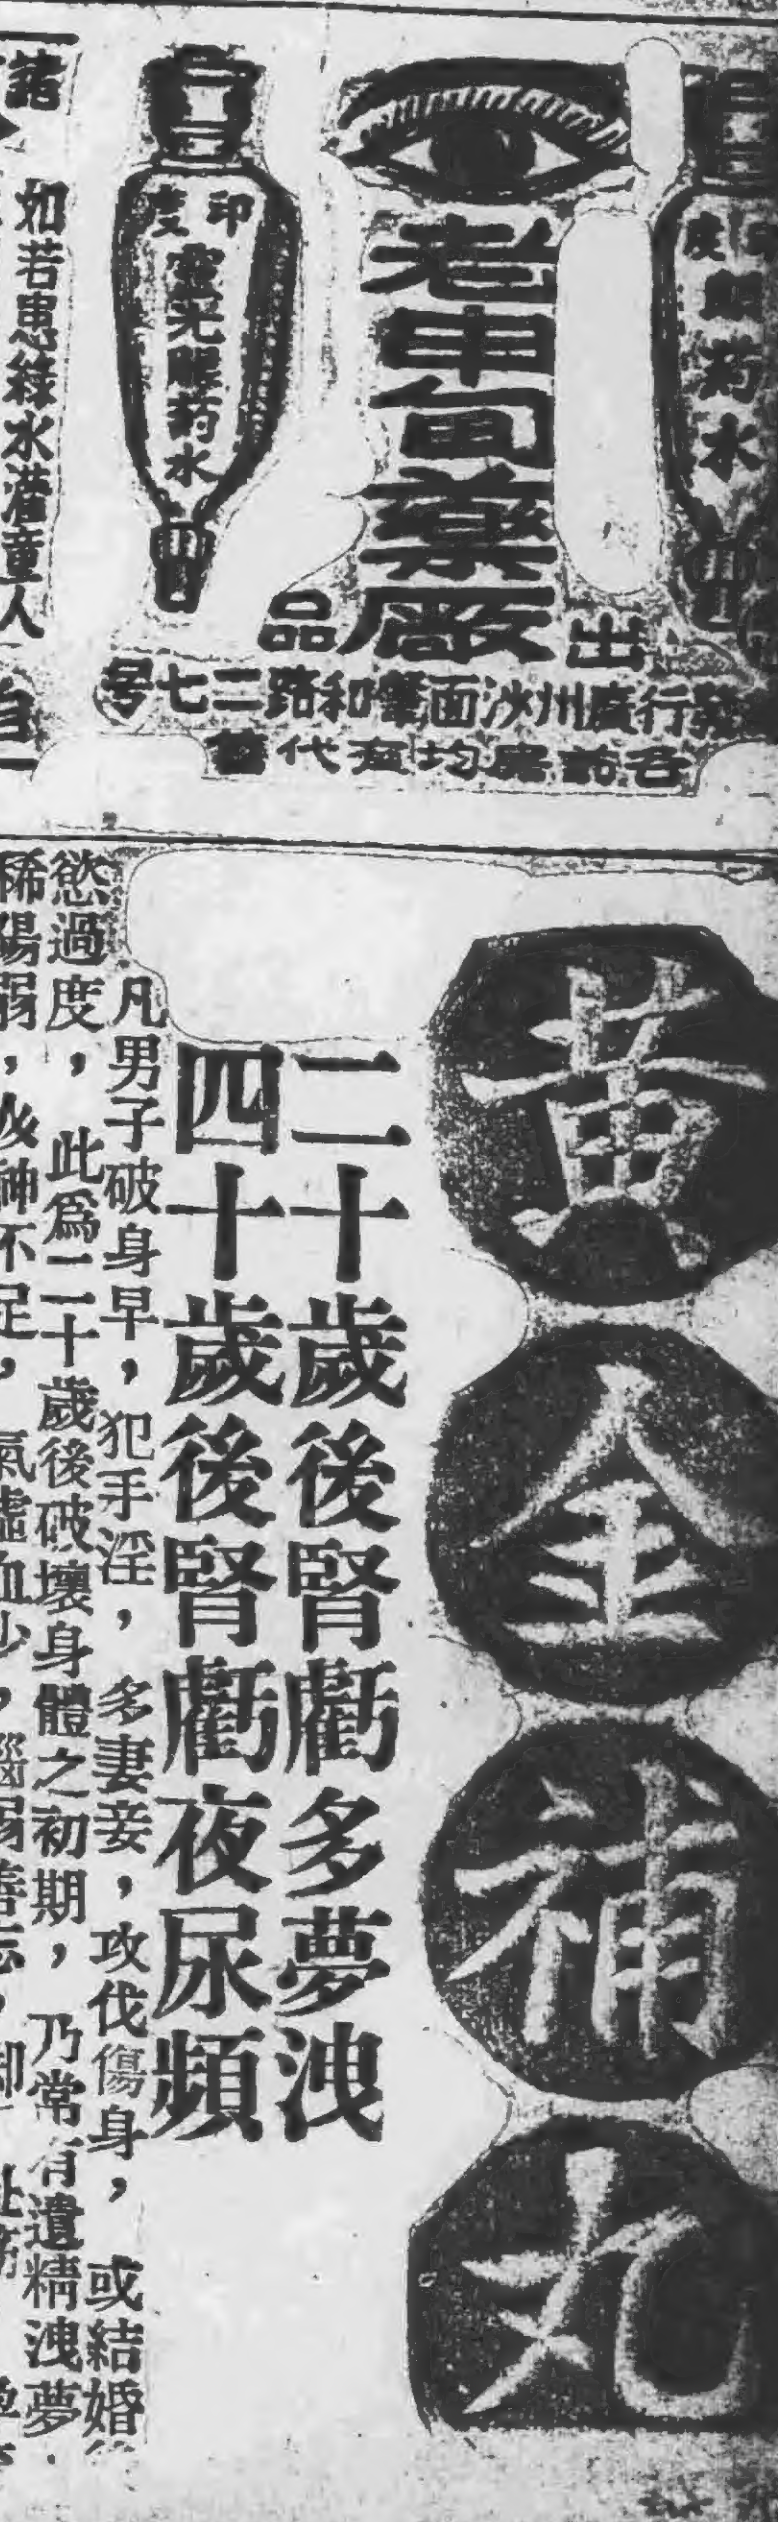 印度
眼药水
老申甸藥廠
出品
行廣州沙面肇和路二七号
各葯房均有代售
印度
靈光眼药水
如若患
水灌童人
黃金補丸
二十歲後腎虧多夢洩
四十歲後腎虧夜尿頻
凡男子破身早，犯手淫，多妻妾，攻伐傷身，或結婚
慾過度，此爲二十歲後破壞身體之初期，乃常有遺精洩夢
稀陽弱，神不足，氣虛血少，腦弱善忘，